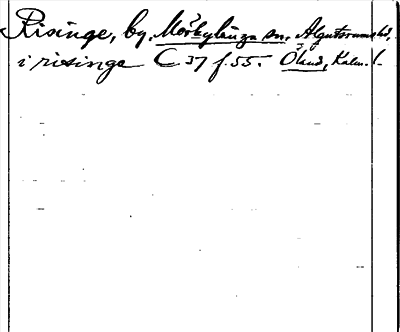 Risinge, by, Mörbylånga sn, Algutsrums hd,
i risinge C 37 f. 55. Öland, Kalm. l.